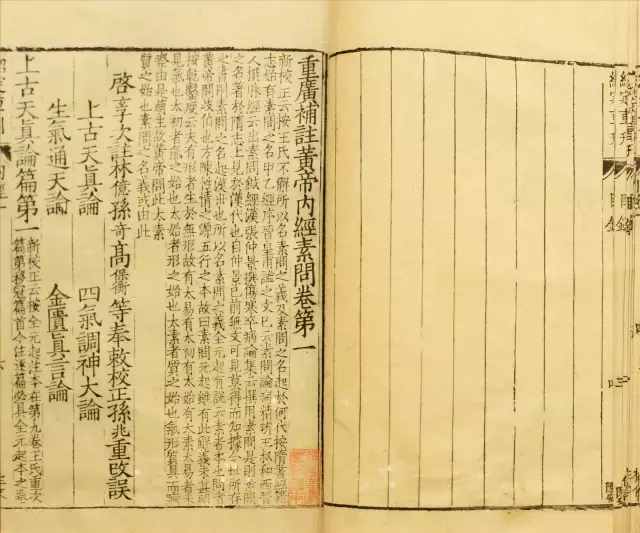 重廣補註黃帝內經素問卷第一
新校正云按王氏不解所以名素問之義及素問之名起於何代按隋書經籍
志始有素問之名甲乙經序晉皇甫謐之文已云素問論病精辨王叔和西晉
人撰脉經云出素問鍼經漢張仲景撰傷寒卒病論集云撰用素問是則素問
之名著於隋志上見於漢代也自仲景已前無文可見莫得而知據今世所存
之書則素問之名起漢世也所以名素問之義全元起有說云素者本也問者
黃帝問岐伯也方陳性情之源五行之本故曰素問元起雖有此解義未甚明
按乾鑿度云夫有形者生於無形故有太易有太初有太始有太素太易者未
見氣也太初者氣之始也太始者形之始也太素者質之始也氣形質具而痾
瘵由是萌生故黃帝問此太素
質之始也素問之名義或由此
啓玄子次註林億孫奇高保衡等奉敕校正孫兆重改誤
上古天眞論 四氣調神大論
生氣通天論 金匱眞言論
上古天眞論篇第一
新校正云按全元起注本在第九卷王氏重次
篇第移冠篇首今注逐篇必具全元起本之卷